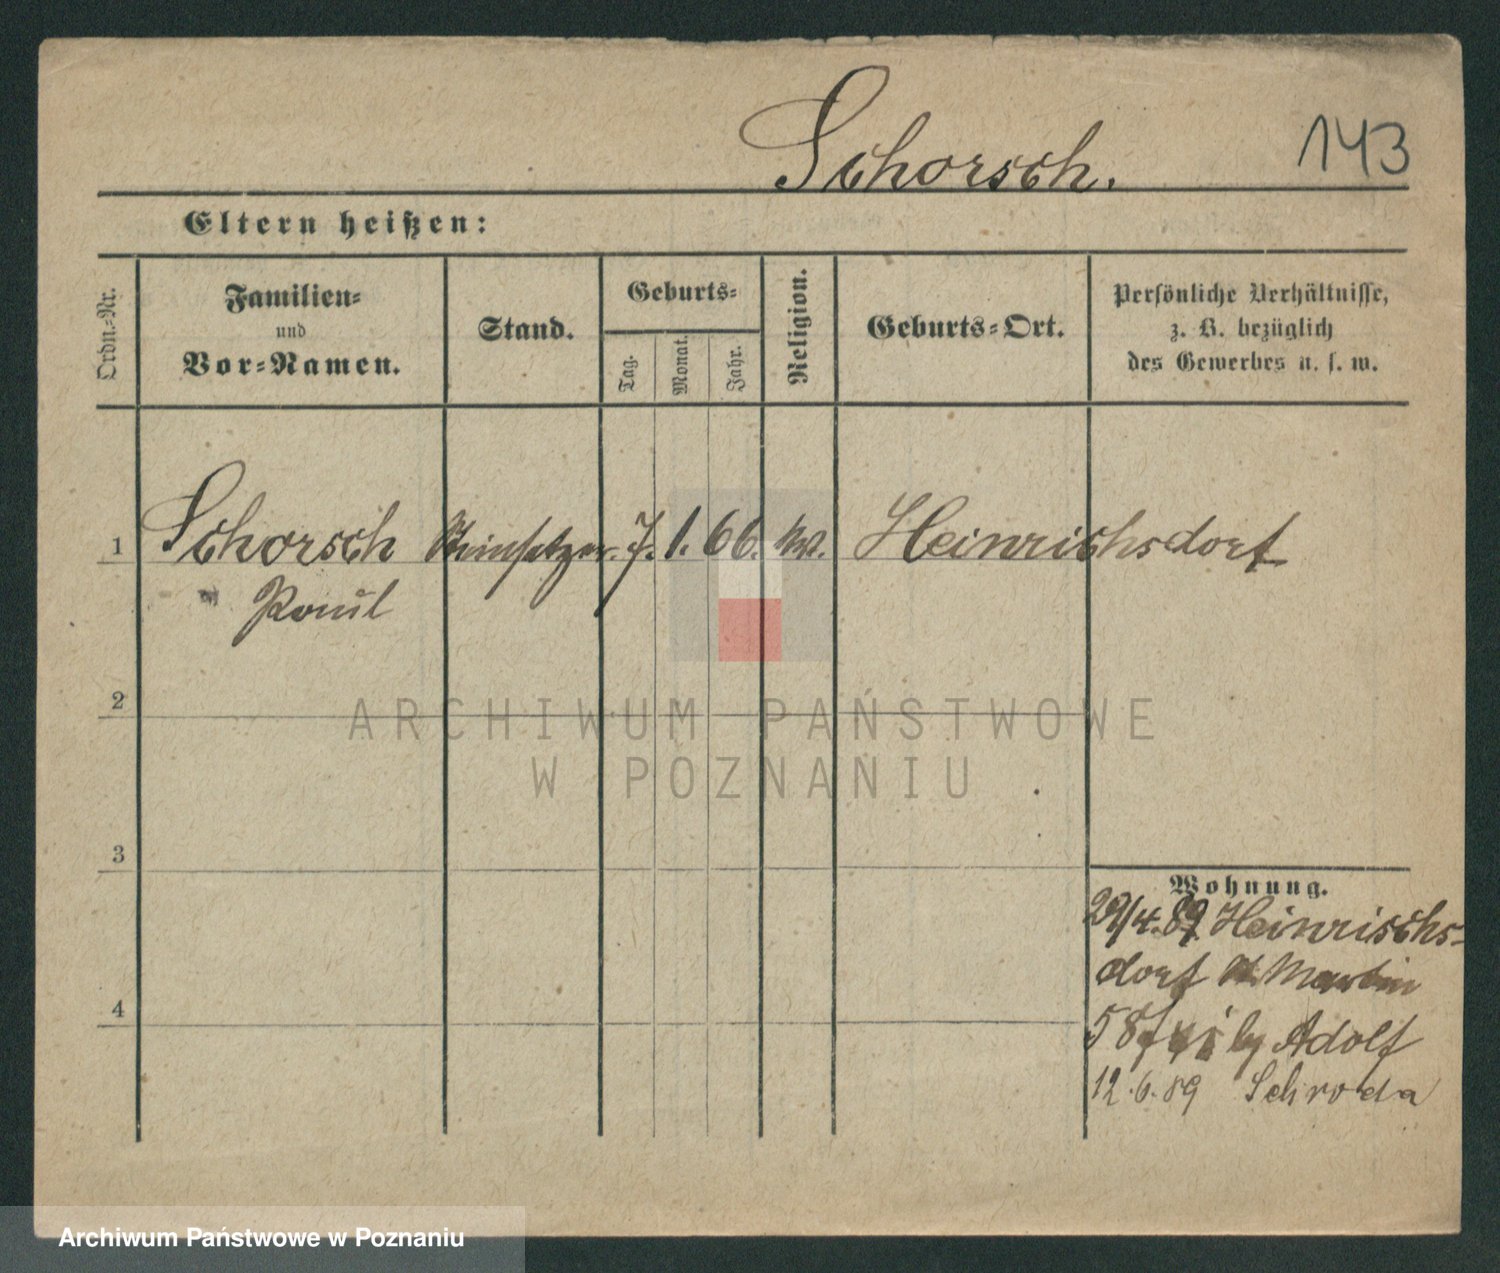 Schorsch.
143
Eltern heißen:
Ordn.-Nr.
Familien-
und
Vor-Namen.
Stand.
Geburts-
Tag.
Monat.
Jahr.
Religion.
Geburts-Ort.
Persönliche Verhältnisse,
z. B. bezüglich
des Gewerbes u. s. w.
1 Schorsch Steinsetzer. 7. 1. 66. Heinrichsdorf
Paul
2
3
4
Wohnung.
29/4.89. Heinrichs-
dorf St. Martin
58 Adolf
12.6.89 Schroda
ARCHIWUM PAŃSTWOWE
W POZNANIU
Archiwum Państwowe w Poznaniu